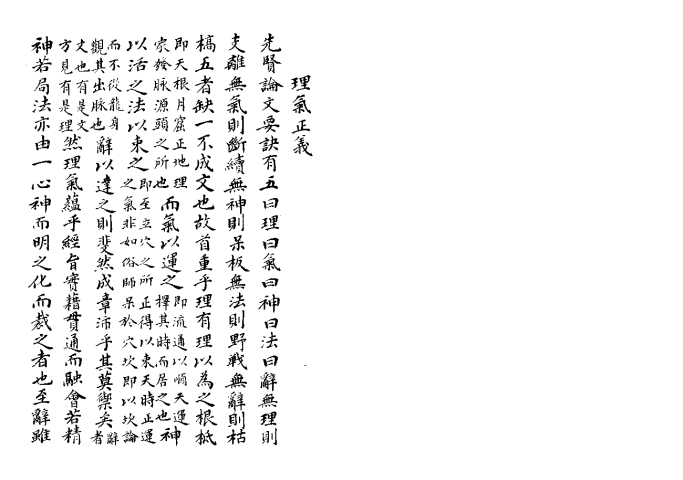 理氣正義
先賢論文要訣有五曰理曰氣曰神曰法曰辭無理則
支離無氣則斷續無神則呆板無法則野戰無辭則枯
槁五者缺一不成文也故首重乎理有理以為之根柢
即天根月窟正地理家發脉源頭之所也而氣以運之即流通以順天運擇其時而居之也神
以活之法以束之即至立穴之所正得以束天時正運之氣非如俗師呆於穴坎即以坎論
而不從龍身觀其出脉也辭以達之則斐然成章沛乎其莫禦矣辭者
文也有是文方見有是理然理氣蘊乎經旨實藉貫通而融會若精
神若局法亦由一心神而明之化而裁之者也至辭雖